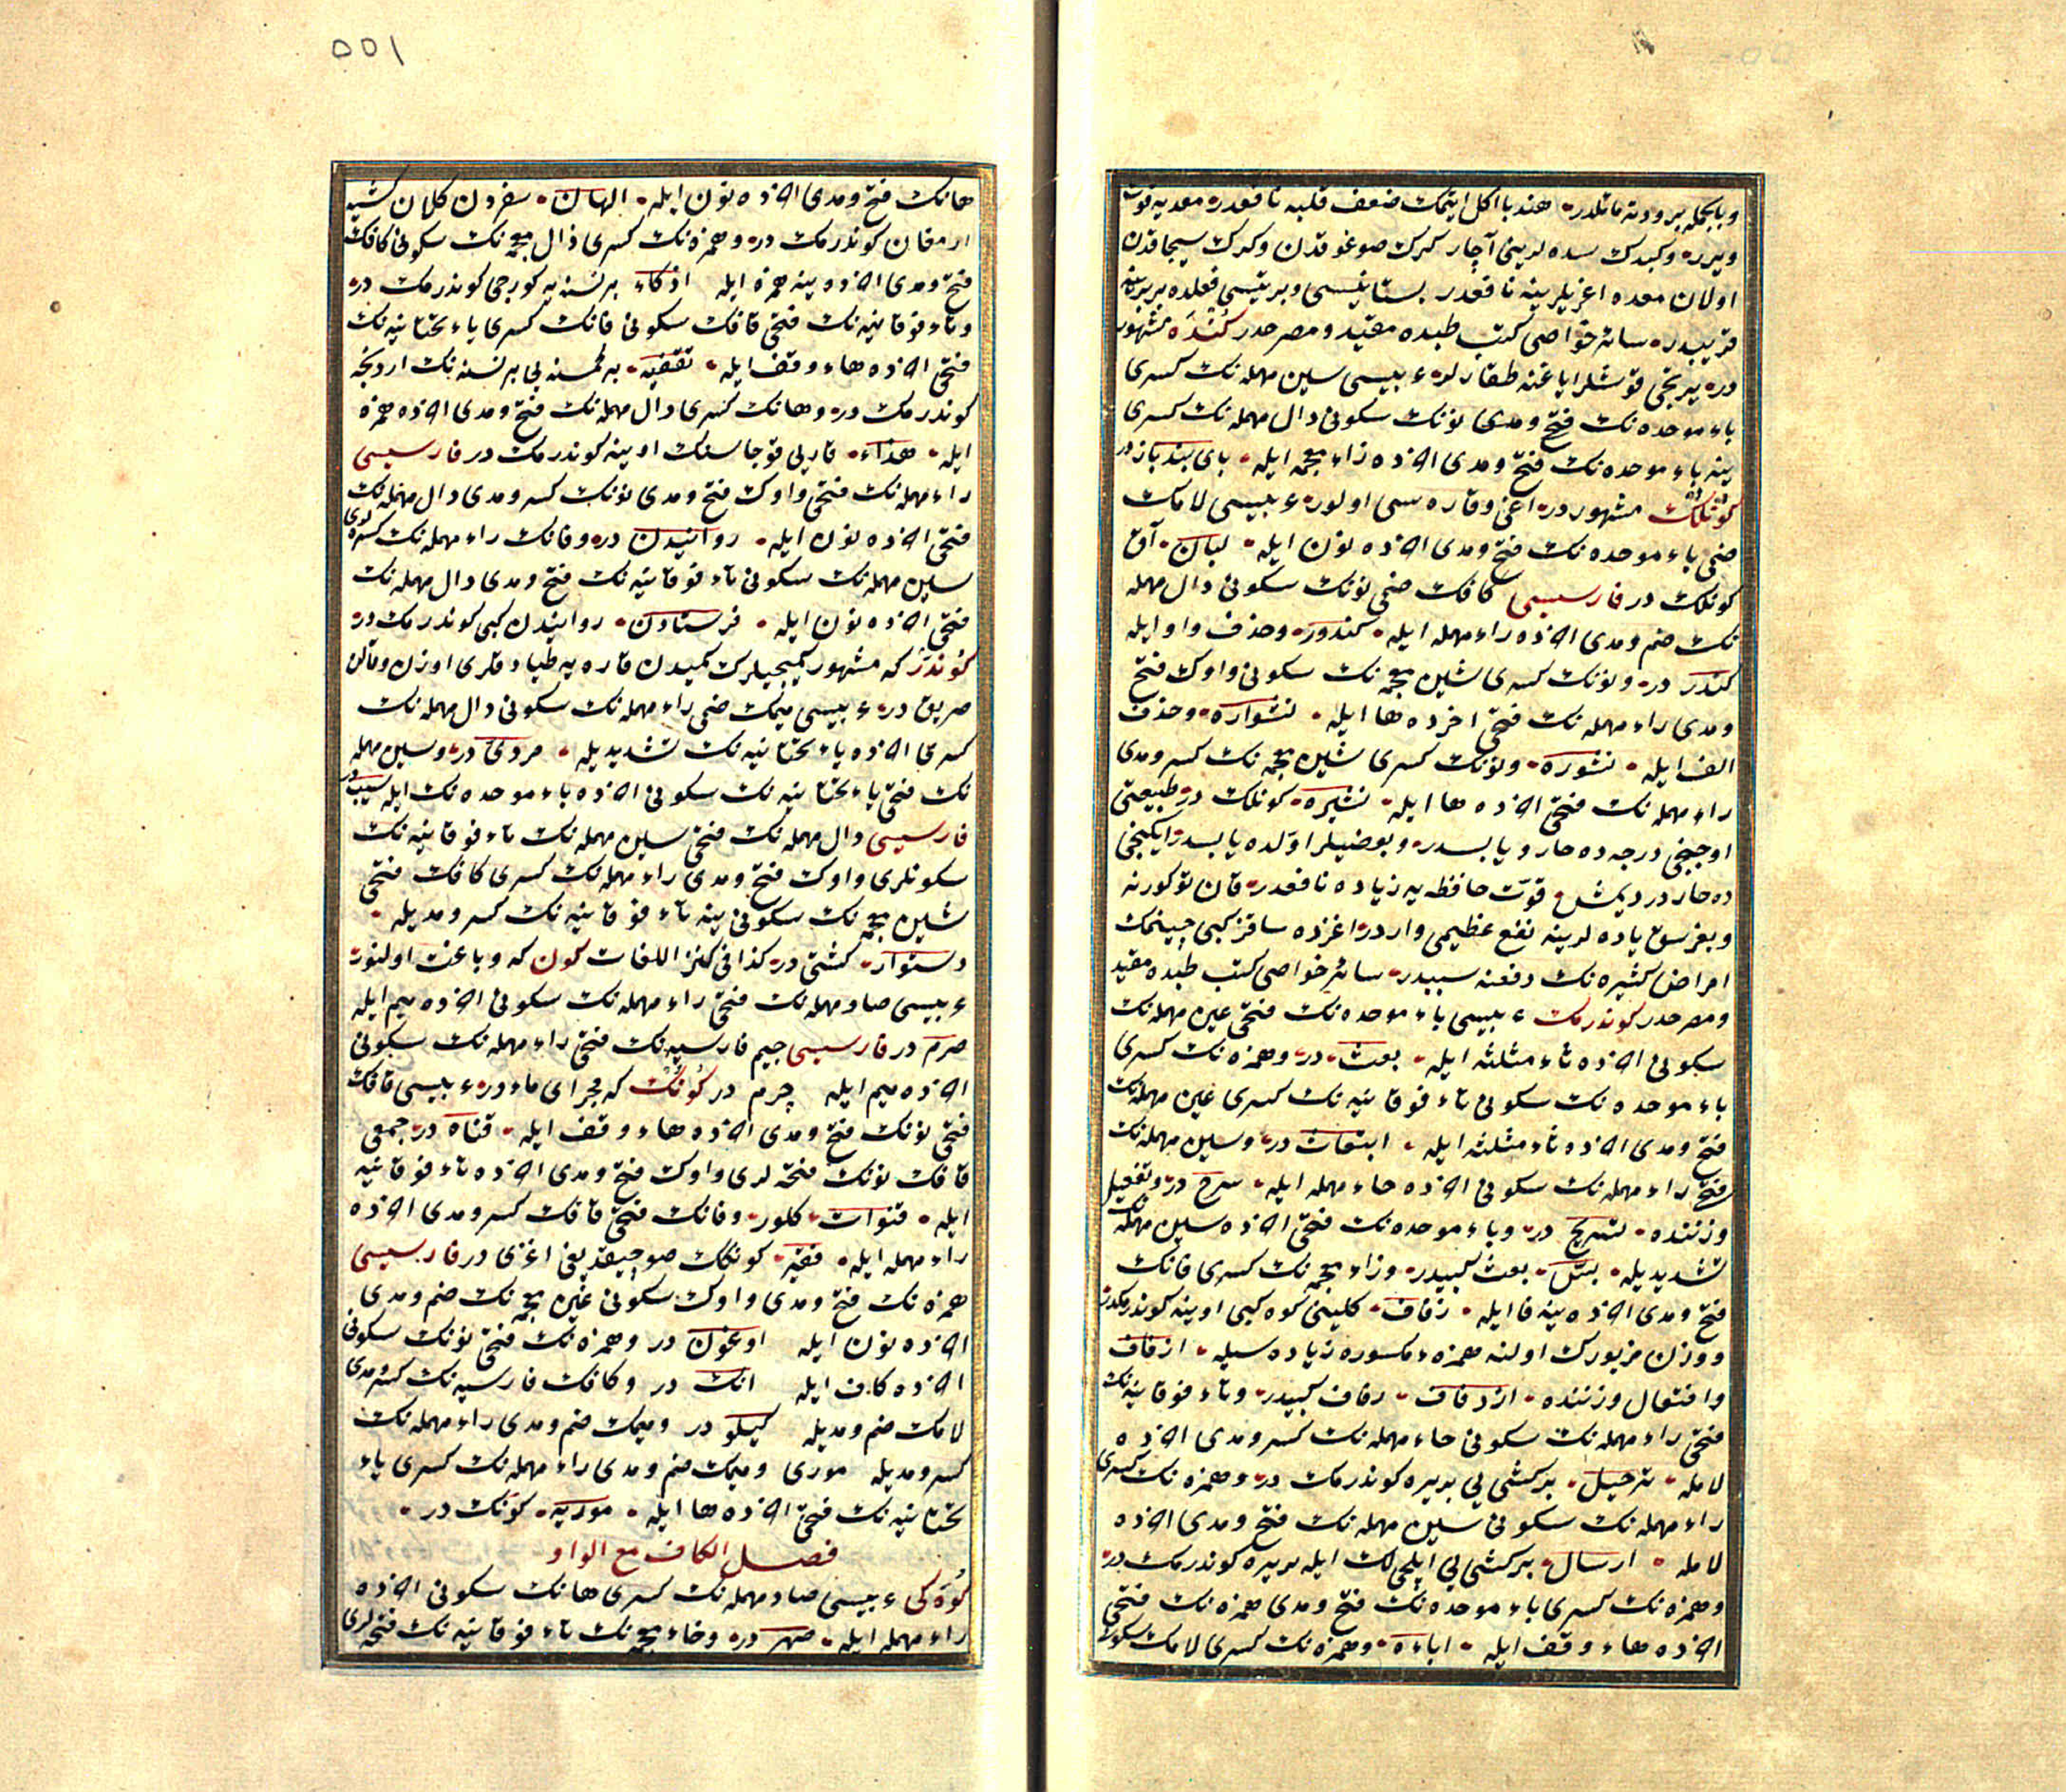 وبالجمله برودته مائلدر هندبا اكل ايتمك ضعف قلبه نافعدر معديه قوت
ويرر وكبدك سده لريني آچار كرك صوغوقدن وكرك سيجاقدن
اولان معده اغريلرينه نافعدر بستانيسى وبريسى فعلده بربرينه
قريبدر سائر خواصى كتب طبده مقيد ومصرحدر كنده مشهور
در يرتجى قوشلر اياغنه طقارلر عربيسى سين مهمله نك كسرى
باء موحده نك فتح ومدى نونك سكونى دال مهمله نك كسرى
ينه باء موحده نك فتح ومدى اخرده زاء معجمه ايله باى بند باز در
كونلك مشهور در اغى وقاره سى اولور عربيسى لامك
ضمى باء موحده نك فتح ومدى اخرده نون ايله لبان آق
كونلك در فارسيسى كافك ضمى نونك سكونى دال مهمله
نك ضم ومدى اخرده راء مهمله ايله كندور وحذف واو ايله
كندر در ونونك كسرى شين معجمه نك سكونى واوك فتح
ومدى راء مهمله نك فتحى اخرده ها ايله نشواره وحذف
الف ايله نشوره ونونك كسرى شين معجمه نك كسر ومدى
راء مهمله نك فتحى اخرده ها ايله نشيره كونلك در طبيعتى
اوچنجى درجه ده حار ويابسدر وبعضيلر اولده يابسدر ايكنجى
ده حار در ديمش قوت حافظه يه زياده نافعدر قان توكورنه
وبغرسق ياده لرينه نفع عظيمى واردر اغزده ساقز كبى چينمك
امراض كثيره نك دفعنه سببدر سائر خواصى كتب طبده مقيد
ومصرحدر كوندرمك عربيسى باء موحده نك فتحى عين مهمله نك
سكونى اخرده ثاء مثلثه ايله بعث در وهمزه نك كسرى
باء موحده نك سكونى تاء فوقانيه نك كسرى عين مهمله نك
فتح ومدى اخرده ثاء مثلثه ايله ابتعاث در وسين مهمله نك
فتحى راء مهمله نك سكونى اخرده حاء مهمله ايله سرح در وتفعيل
وزننده تسريح در وباء موحده نك فتحى اخرده سين مهمله نك
تشديديله بسّ بعث كبيدر وزاء معجمه نك كسرى فانك
فتح ومدى اخرده ينه فا ايله زفاف كلينى كوه كبى اوينه كوندرمكدر
ووزن مزبورك اولنه همزه مكسوره زياده سيله ازفاف
وافتعال وزننده ازدفاف زفاف كبيدر وتاء فوقانيه نك
فتحى راء مهمله نك سكونى حاء مهمله نك كسر ومدى اخرده
لامله ترحيل بر كشى يى بر يره كوندرمك در وهمزه نك كسرى
راء مهمله نك سكونى سين مهمله نك فتح ومدى اخرده
لامله ارسال بر كشى يى ايلچى لك ايله بر يره كوندرمك در
وهمزه نك كسرى باء موحده نك فتح ومدى همزه نك فتحى
اخرده هاء وقف ايله اباءه وهمزه نك كسرى لامك سكونى
١٥٥
هانك فتح ومدى اخرده نون ايله الهان سفردن كلان كشيه
ارمغان كوندرمك در وهمزه نك كسرى ذال معجمه نك سكونى كافك
فتح ومدى اخرده ينه همزه ايله اذكاء بر نسنه يه كوزجى كوندرمك در
وتاء فوقانيه نك فتحى قافك سكونى فانك كسرى ياء تحتانيه نك
فتحى اخرده هاء وقف ايله تقفيه بر كمسنه يى بر نسنه نك اردنجه
كوندرمك در وهانك كسرى دال مهمله نك فتح ومدى اخرده همزه
ايله هداء قارىى قوجاسنك اوينه كوندرمك در فارسيسى
راء مهمله نك فتحى واوك فتح ومدى نونك كسر ومدى دال مهمله نك
فتحى اخرده نون ايله روانيدن در وفانك راء مهمله نك كسره لرى
سين مهمله نك سكونى تاء فوقانيه نك فتح ومدى دال مهمله نك
فتحى اخرده نون ايله فرستادن روانيدن كبى كوندرمك در
كوندر كه مشهور كميجيلرك كميدن قاره يه طياد قلرى اوزن وقالن
صريق در عربيسى ميمك ضمى راء مهمله نك سكونى دال مهمله نك
كسرى اخرده ياء تحتانيه نك تشديديله مردى در وسين مهمله
نك فتحى ياء تحتانيه نك سكونى اخرده باء موحده نك ايله سيب در
فارسيسى دال مهمله نك فتحى سين مهمله نك تاء فوقانيه نك
سكونلرى واوك فتح ومدى راء مهمله نك كسرى كافك فتحى
شين معجمه نك سكونى ينه تاء فوقانيه نك كسر ومديله
دستوار كشتى در كذا فى كنز اللغات كون كه وباغت اولنور
عربيسى صاد مهمله نك فتحى راء مهمله نك سكونى اخرده ميم ايله
صرم در فارسيسى جيم فارسيه نك فتحى راء مهمله نك سكونى
اخرده ميم ايله چرم در كونك كه مجراى ماءدر عربيسى قافك
فتحى نونك فتح ومدى اخرده هاء وقف ايله قناه در جمعى
قافك نونك فتحه لرى واوك فتح ومدى اخرده تاء فوقانيه
ايله قنوات كلور وفانك فتحى قافك كسر ومدى اخرده
راء مهمله ايله فقير كونكك صو چيقديغى اغزى در فارسيسى
همزه نك فتح ومدى واوك سكونى غين معجمه نك ضم ومدى
اخرده نون ايله اوغون در وهمزه نك فتحى نونك سكونى
اخرده كاف ايله انك در وكافك فارسيه نك كسر ومدى
لامك ضم ومديله كيلو در وميمك ضم ومدى راء مهمله نك
كسر ومديله مورى وميمك ضم ومدى راء مهمله نك كسرى ياء
تحتانيه نك فتحى اخرده ها ايله موريه كونك در
فصل الكاف مع الواو
كوه كى عربيسى صاد مهمله نك كسرى هانك سكونى اخرده
راء مهمله ايله صهر در وخاء معجمه نك تاء فوقانيه نك فتحه لرى